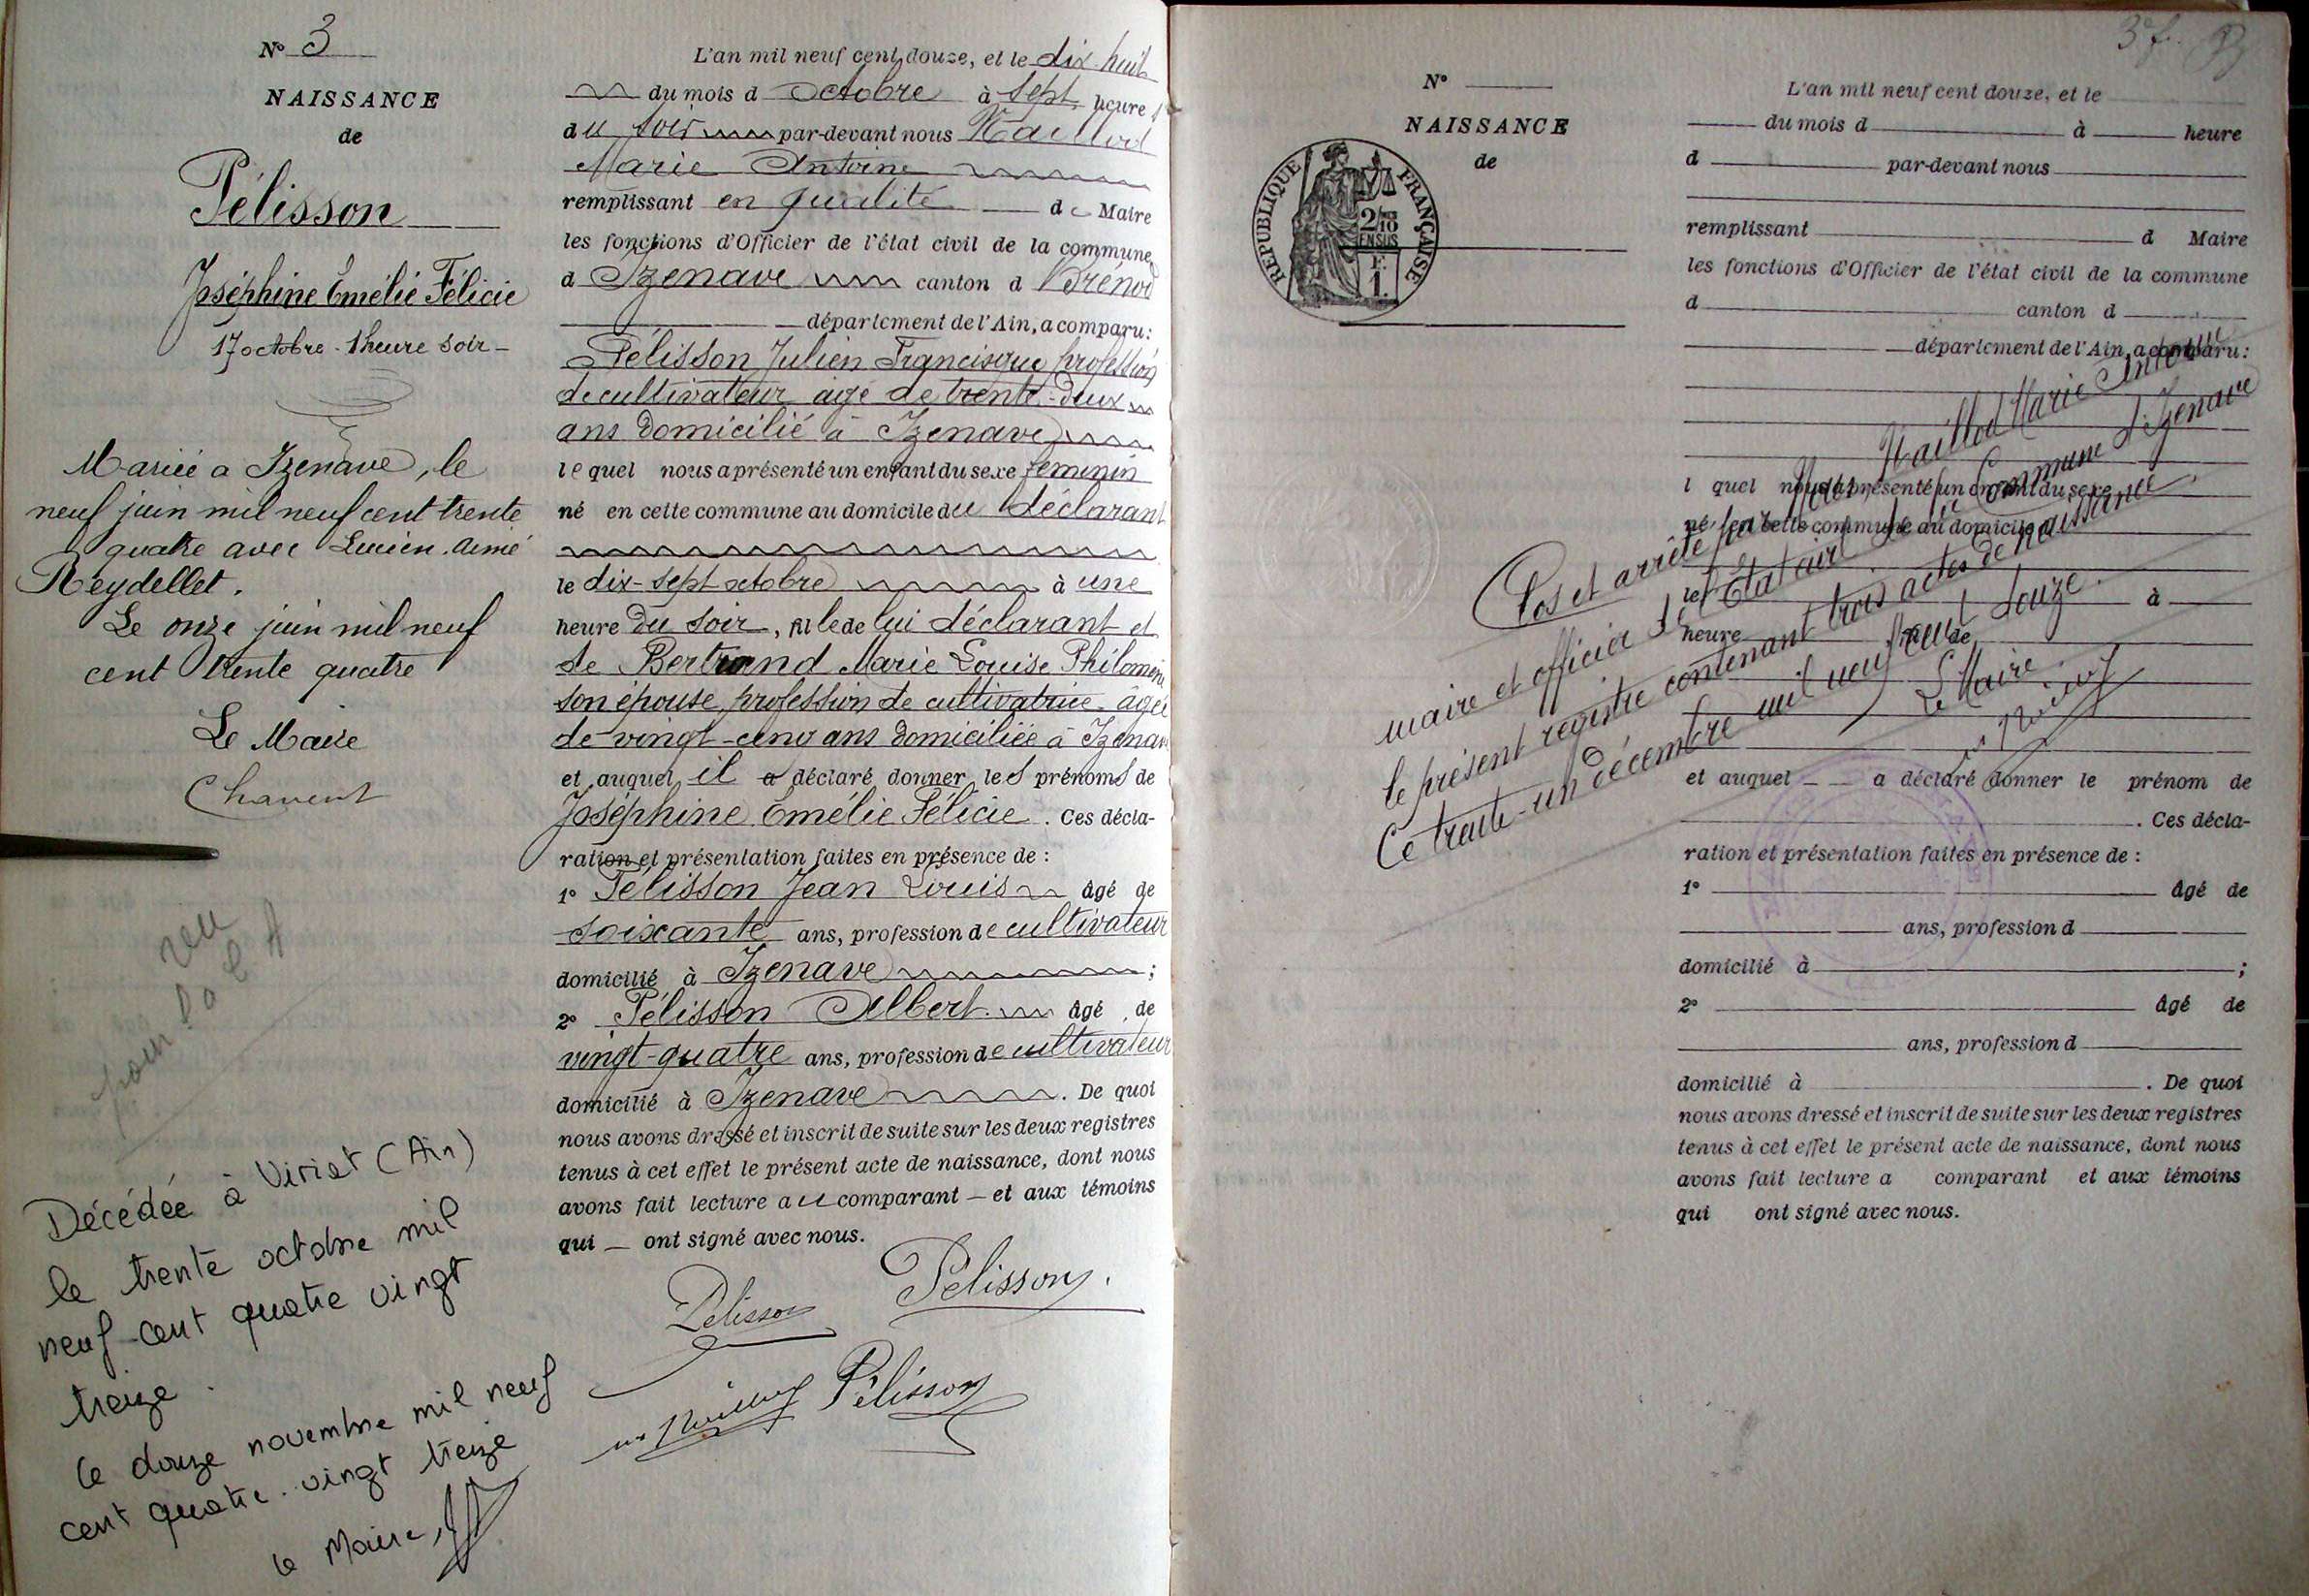 N° 3
NAISSANCE
de
Pélisson
Joséphine Emélie Félicie
17 octobre - 1 heure soir -
Mariée a Izenave, le
neuf juin mil neuf cent trente
quatre avec Lucien Aimé
Reydellet.
Le onze juin mil neuf
cent trente quatre
Le Maire
Décédée à Viriat (Ain)
le trente octobre mil
neuf cent quatre vingt
treize.
le douze novembre mil neuf
cent quatre-vingt treize
le Maire,
L'an mil neuf cent douze, et le dix-huit
du mois d octobre à sept heures
du soir par-devant nous Maillod
Marie Antoine
remplissant en qualité de Maire
les fonctions d'Officier de l'état civil de la commune
d Izenave canton d Brénod
département de l'Ain, a comparu:
Pélisson Julien Francisque profession
de cultivateur âgé de trente-deux
ans domicilié à Izenave
lequel nous a présenté un enfant du sexe féminin
né en cette commune au domicile du déclarant
le dix-sept octobre à une
heure du soir, fille de lui déclarant et
de Bertrand Marie Louise Philomène
son épouse, profession de cultivatrice âgée
de vingt-cinq ans domiciliée à Izenave
et auquel il a déclaré donner les prénoms de
Joséphine Emélie Félicie. Ces décla-
ration et présentation faites en présence de :
1° Pélisson Jean Louis âgé de
soixante ans, profession de cultivateur
domicilié à Izenave ;
2° Pélisson Albert âgé de
vingt-quatre ans, profession de cultivateur
domicilié à Izenave . De quoi
nous avons dressé et inscrit de suite sur les deux registres
tenus à cet effet le présent acte de naissance, dont nous
avons fait lecture au comparant — et aux témoins
qui — ont signé avec nous.
Pelisson Pelisson.
Pélisson
N°
NAISSANCE
de
REPUBLIQUE FRANÇAISE
2/10
EN SUS
F.
1.
L'an mil neuf cent douze, et le
du mois d à heure
d par-devant nous
remplissant d Maire
les fonctions d'Officier de l'état civil de la commune
d canton d
département de l'Ain, a comparu:
l quel nous a présenté un enfant du sexe
né en cette commune au domicile
le à
heure fil de
et auquel a déclaré donner le prénom de
. Ces décla-
ration et présentation faites en présence de :
1° âgé de
ans, profession d
domicilié à ;
2° âgé de
ans, profession d
domicilié à . De quoi
nous avons dressé et inscrit de suite sur les deux registres
tenus à cet effet le présent acte de naissance, dont nous
avons fait lecture a comparant et aux témoins
qui ont signé avec nous.
Clos et arrêté par Nous, Maillod Marie Antoine
maire et officier de l'Etat civil de la Commune d'Izenave
le présent registre contenant trois actes de naissance.
Ce trente-un décembre mil neuf cent douze.
Le Maire.